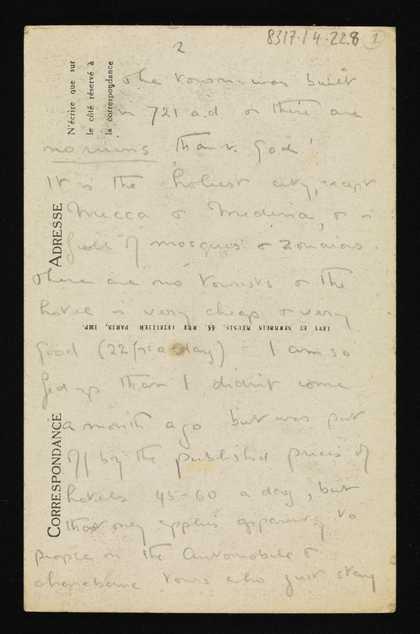 8317.14.228 1
2
N'écrire que sur
le côté réservé à
la correspondance
ADRESSE
CORRESPONDANCE
LEVY ET NEURDEIN REUNIS, 44, RUE LETELLIER, PARIS, IMP.
The town was built
in 721 a.d & there are
no ruins thank God!
It is the holiest city, except
Mecca & Medina, & is
full of mosques & Zouaias.
There are no tourists & the
hotel is very cheap & very
good (22/ a day) - I am so
fed up that I didn't come
a month ago but was put
off by the published prices of
hotels 45-60 a day, but
that only applies apparently to
people on the automobile &
charabanc tours who just stay